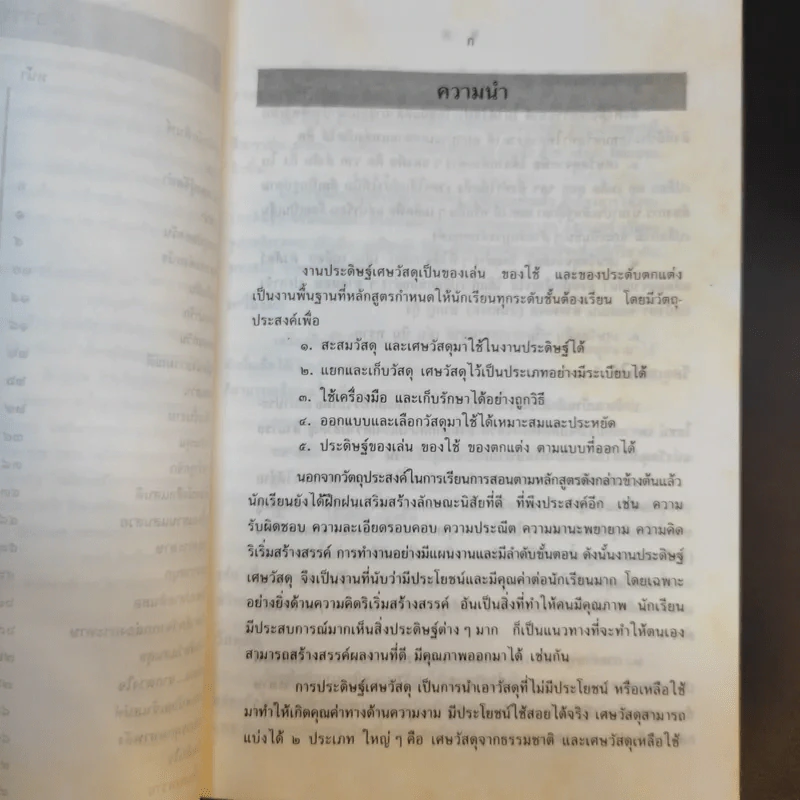 ก
ความนำ
งานประดิษฐ์เศษวัสดุเป็นของเล่น ของใช้ และของประดับตกแต่ง
เป็นงานพื้นฐานที่หลักสูตรกำหนดให้นักเรียนทุกระดับชั้นต้องเรียน โดยมีวัตถุ-
ประสงค์เพื่อ
๑. สะสมวัสดุ และเศษวัสดุมาใช้ในงานประดิษฐ์ได้
๒. แยกและเก็บวัสดุ เศษวัสดุไว้เป็นประเภทอย่างมีระเบียบได้
๓. ใช้เครื่องมือ และเก็บรักษาได้อย่างถูกวิธี
๔. ออกแบบและเลือกวัสดุมาใช้ได้เหมาะสมและประหยัด
๕. ประดิษฐ์ของเล่น ของใช้ ของตกแต่ง ตามแบบที่ออกได้
นอกจากวัตถุประสงค์ในการเรียนการสอนตามหลักสูตรดังกล่าวข้างต้นแล้ว
นักเรียนยังได้ฝึกฝนเสริมสร้างลักษณะนิสัยที่ดี ที่พึงประสงค์อีก เช่น ความ
รับผิดชอบ ความละเอียดรอบคอบ ความประณีต ความมานะพยายาม ความคิด
ริเริ่มสร้างสรรค์ การทำงานอย่างมีแผนงานและมีลำดับขั้นตอน ดังนั้นงานประดิษฐ์
เศษวัสดุ จึงเป็นงานที่นับว่ามีประโยชน์และมีคุณค่าต่อนักเรียนมาก โดยเฉพาะ
อย่างยิ่งด้านความคิดริเริ่มสร้างสรรค์ อันเป็นสิ่งที่ทำให้คนมีคุณภาพ นักเรียน
มีประสบการณ์มากเห็นสิ่งประดิษฐ์ต่าง ๆ มาก ก็เป็นแนวทางที่จะทำให้ตนเอง
สามารถสร้างสรรค์ผลงานที่ดี มีคุณภาพออกมาได้ เช่นกัน
การประดิษฐ์เศษวัสดุ เป็นการนำเอาวัสดุที่ไม่มีประโยชน์ หรือเหลือใช้
มาทำให้เกิดคุณค่าทางด้านความงาม มีประโยชน์ใช้สอยได้จริง เศษวัสดุสามารถ
แบ่งได้ ๒ ประเภท ใหญ่ ๆ คือ เศษวัสดุจากธรรมชาติ และเศษวัสดุเหลือใช้